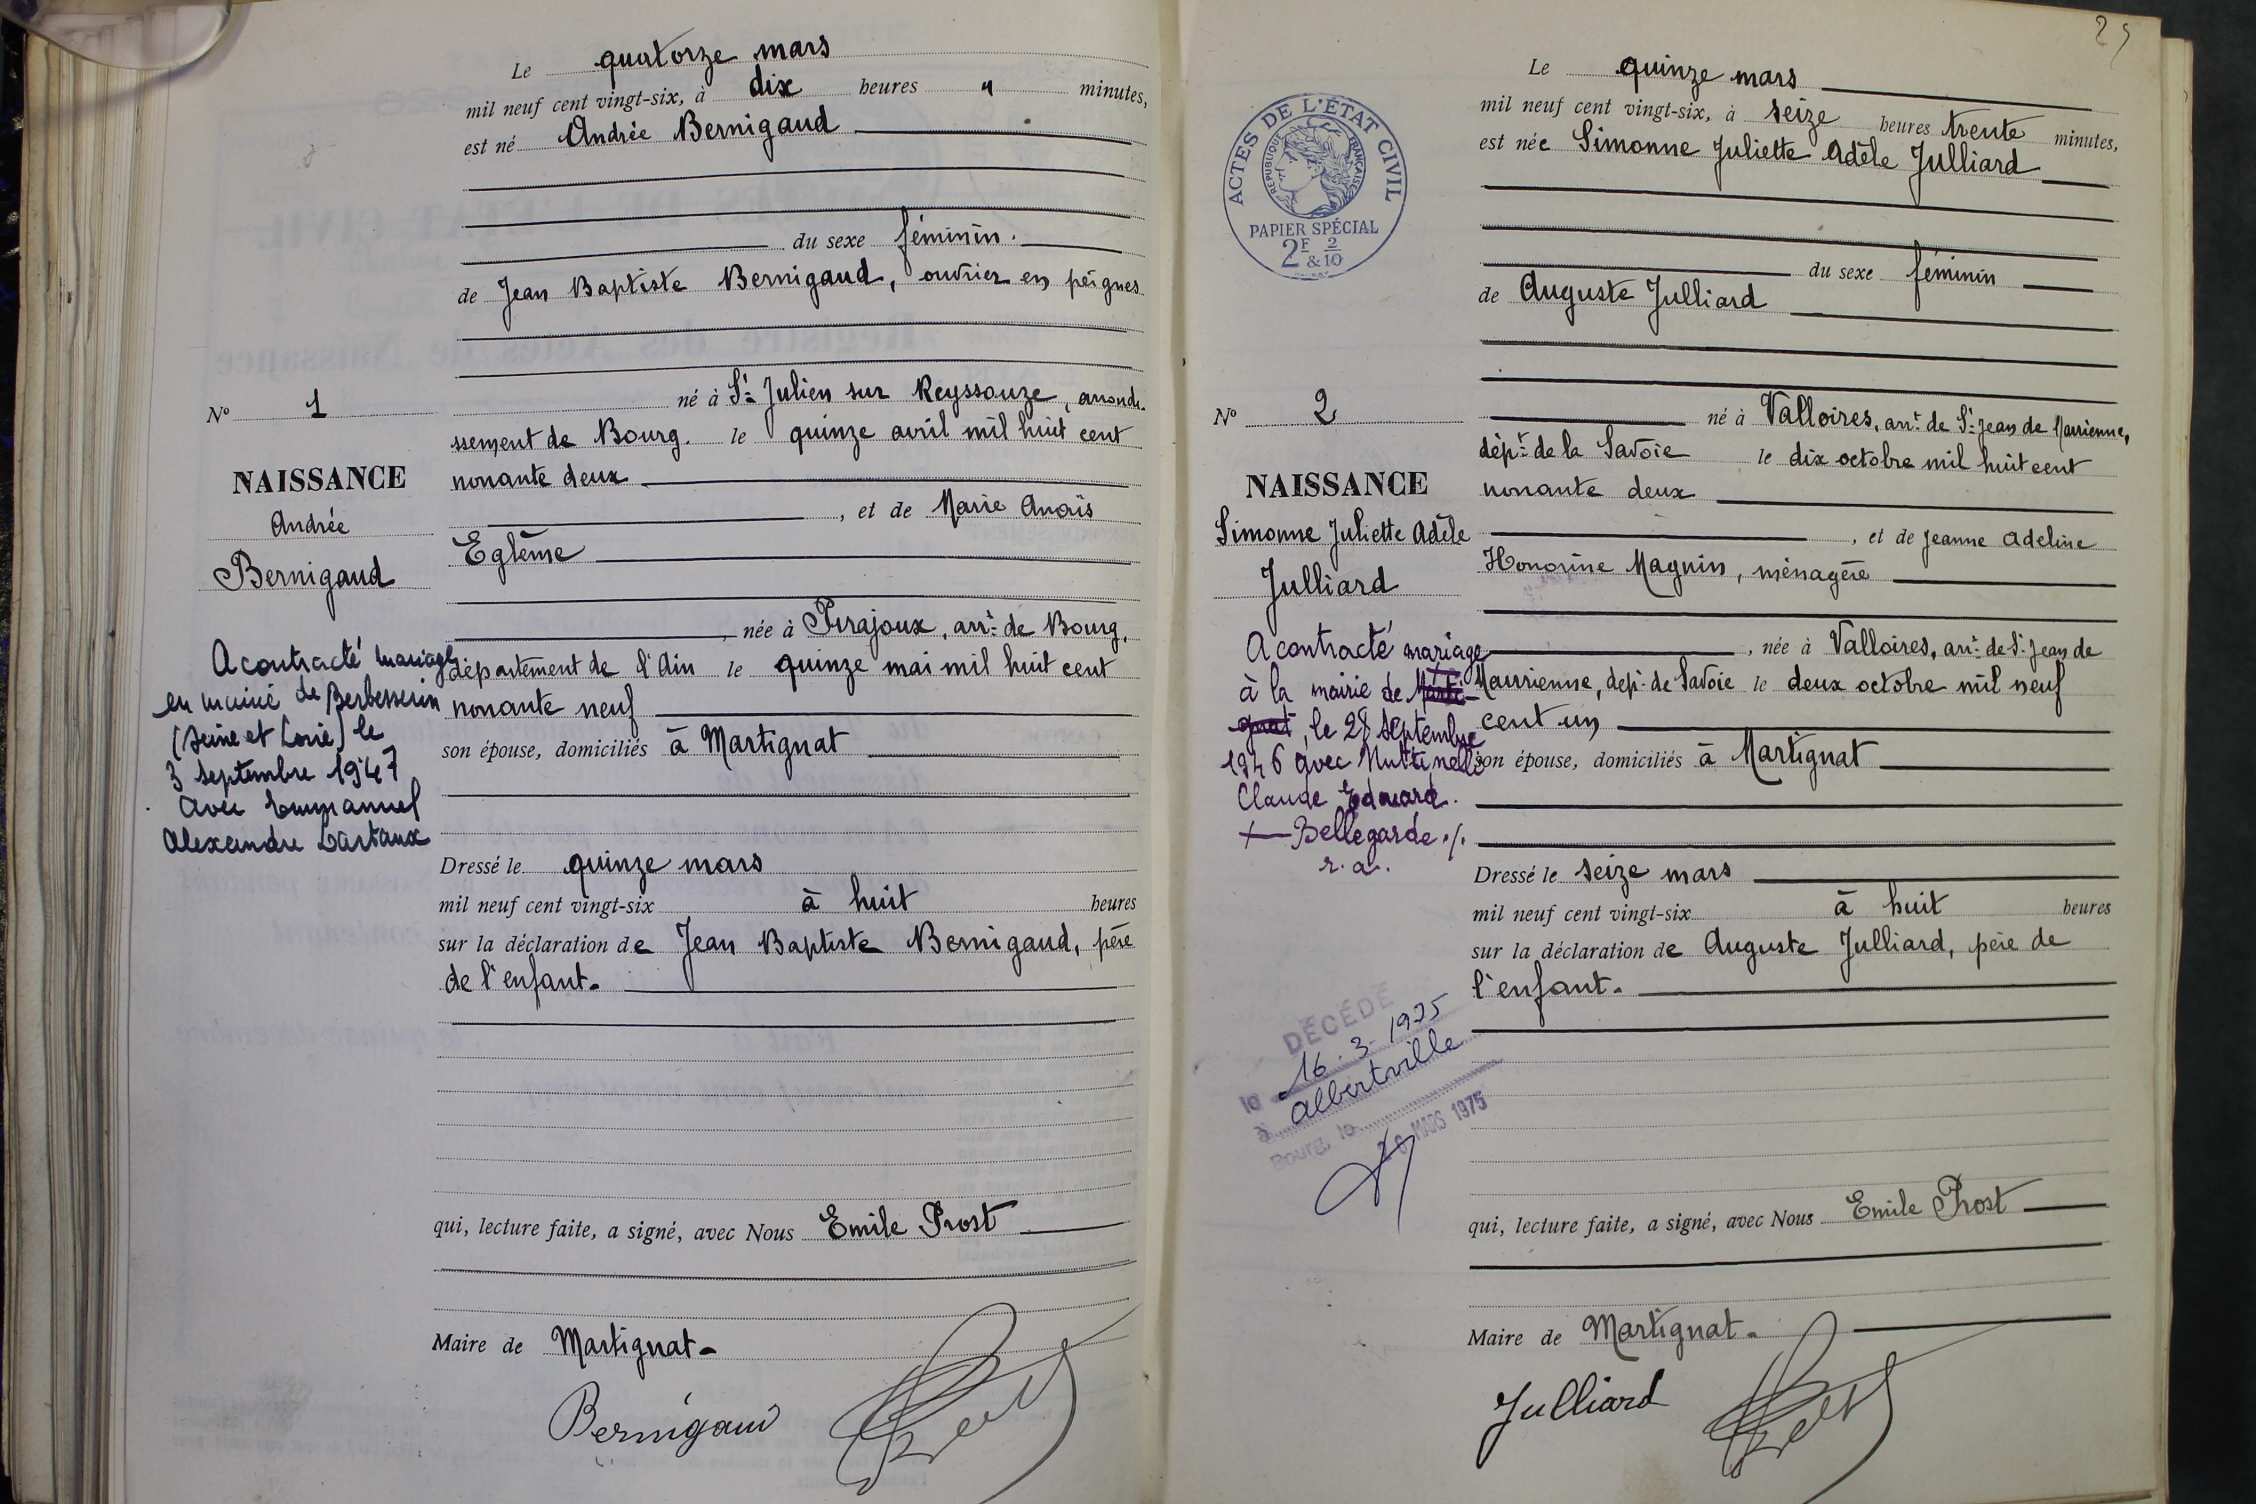 Le quatorze mars
mil neuf cent vingt-six, à dix heures " minutes,
est né Andrée Bernigaud
du sexe féminin.
de Jean Baptiste Bernigaud, ouvrier en peignes
né à St Julien sur Reyssouze, arrondi-
ssement de Bourg. le quinze avril mil huit cent
nonante deux
, et de Marie Anaïs
Eglème
, née à Pirajoux, arrt de Bourg,
département de l'Ain le quinze mai mil huit cent
nonante neuf
son épouse, domiciliés à Martignat
Dressé le quinze mars
mil neuf cent vingt-six à huit heures
sur la déclaration de Jean Baptiste Bernigaud, père
de l'enfant.
qui, lecture faite, a signé, avec Nous Emile Prost
Maire de Martignat.
Bernigaud
No 1
NAISSANCE
Andrée
Bernigaud
A contracté mariage
en mairie de
le
3 septembre 1947
avec Emmanuel
Alexandre
25
ACTES DE L'ÉTAT CIVIL
RÉPUBLIQUE FRANÇAISE
PAPIER SPÉCIAL
2F & 2/10
Le quinze mars
mil neuf cent vingt-six, à seize heures trente minutes,
est née Simonne Juliette Adèle Julliard
du sexe féminin
de Auguste Julliard
né à Valloires, arrt de St Jean de Maurienne,
dépt de la Savoie le dix octobre mil huit cent
nonante deux
, et de Jeanne Adeline
Honorine Magnin, ménagère
, née à Valloires, arrt de St Jean de
Maurienne, dept de Savoie le deux octobre mil neuf
cent un
son épouse, domiciliés à Martignat
Dressé le seize mars
mil neuf cent vingt-six à huit heures
sur la déclaration de Auguste Julliard, père de
l'enfant.
qui, lecture faite, a signé, avec Nous Emile Prost
Maire de Martignat.
Julliard
No 2
NAISSANCE
Simonne Juliette Adèle
Julliard
A contracté mariage
à la mairie de Marti-
gnat, le 28 septembre
1946 avec
Claude Edouard.
+ Bellegarde ./.
r. a.
DÉCÉDÉ
le 16.3.1975
à Albertville
Bourg, le MARS 1975